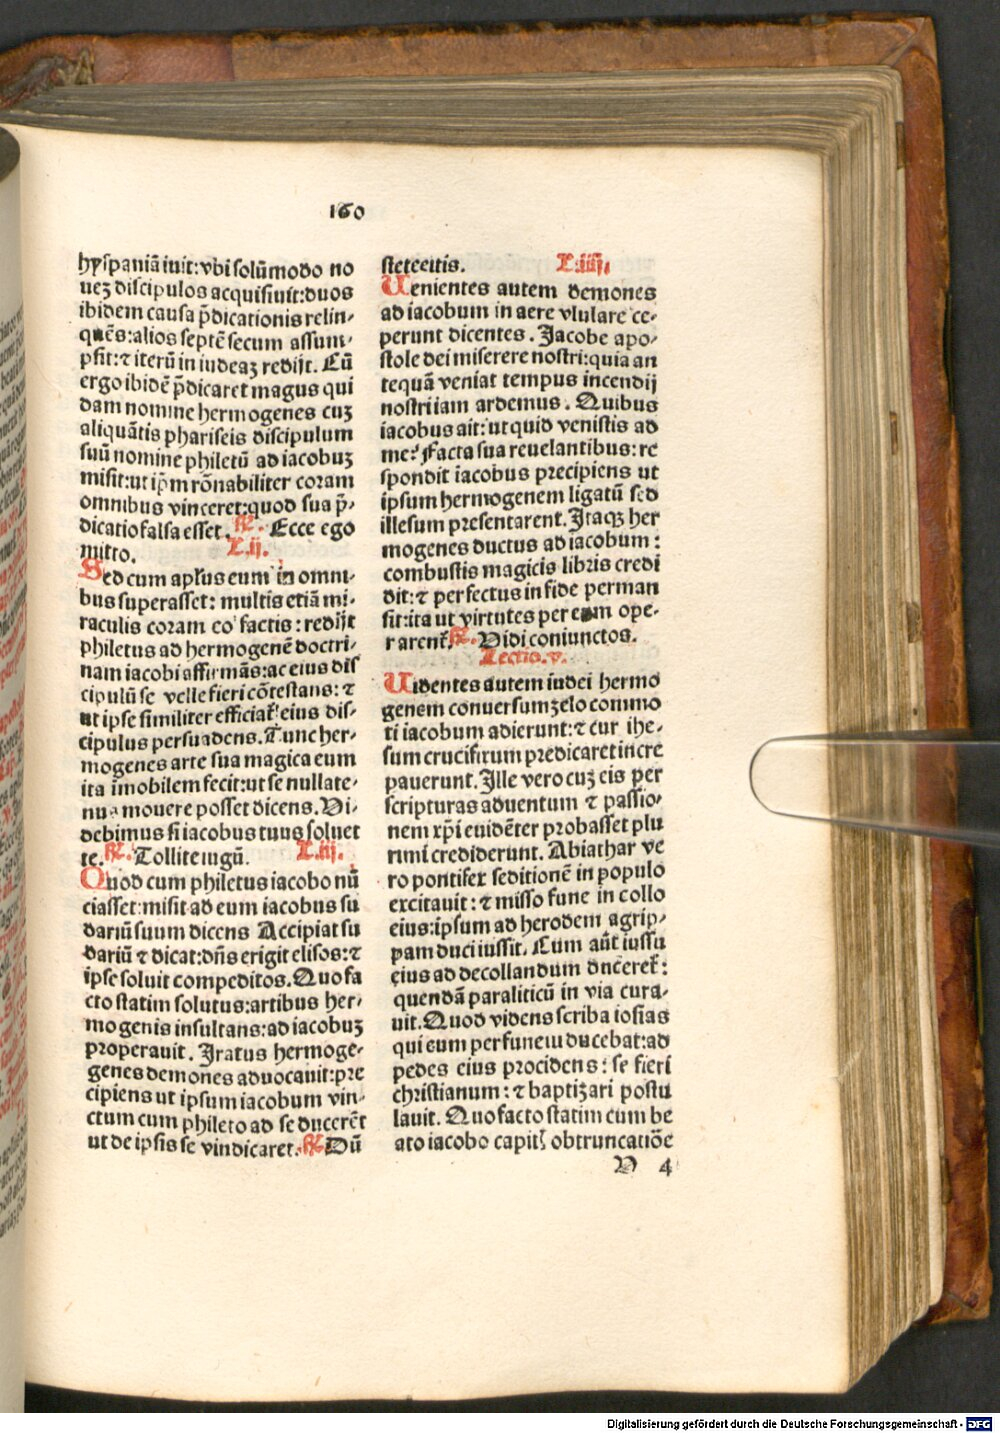 160
hyspaniã iuit:vbi solũmodo no
uez discipulos acquisiuit:duos
ibidem causa p̃dicationis relin-
quẽs:alios septẽ secum assum-
psit:⁊ iterũ in iudeaʒ redijt. Cũ
ergo ibidẽ p̃dicaret magus qui
dam nomine hermogenes cuʒ
aliquãtis phariseis discipulum
suũ nomine philetũ ad iacobuʒ
misit:ut ip̃m rõnabiliter coram
omnibus vinceret:quod sua p̃-
dicatio falsa esset. ℟. Ecce ego
mitto. L.ij.
Sed cum apl̃us eum in omni-
bus superasset: multis etiã mi-
raculis coram eo factis: redijt
philetus ad hermogenẽ doctri-
nam iacobi affirmãs:ac eius dis
cipulũ se velle fieri cõtestans: ⁊
ut ipse similiter efficiat̃ eius dis-
cipulus persuadens. Tunc her-
mogenes arte sua magica eum
ita ĩmobilem fecit:ut se nullate-
nus mouere posset dicens. Vi-
debimus si iacobus tuus soluet
te. ℟. Tollite iugũ. L.iij.
Quod cum philetus iacobo nũ
ciasset:misit ad eum iacobus su
dariũ suum dicens Accipiat su
dariũ ⁊ dicat:dñs erigit elisos:⁊
ipse soluit compeditos. Quo fa
cto statim solutus:artibus her-
mogenis insultans:ad iacobuʒ
properauit. Iratus hermoge-
genes demones aduocauit:pre
cipiens ut ipsum iacobum vin-
ctum cum phileto ad se ducerẽt
ut de ipsis se vindicaret. ℟. Dũ
steteritis. L.iiij.
Uenientes autem demones
ad iacobum in aere vlulare ce-
perunt dicentes. Jacobe apo-
stole dei miserere nostri:quia an
tequã veniat tempus incendij
nostri iam ardemus. Quibus
iacobus ait:ut quid venistis ad
me? Facta sua reuelantibus:re
spondit iacobus precipiens ut
ipsum hermogenem ligatũ sed
illesum presentarent. Itaqʒ her
mogenes ductus ad iacobum:
combustis magicis libris credi
dit:⁊ perfectus in fide perman
sit:ita ut virtutes per eum ope-
rarent̃. ℟. Vidi coniunctos.
Lectio.v.
Uidentes autem iudei hermo
genem conuersum zelo commo
ti iacobum adierunt:⁊ cur ihe-
sum crucifixum predicaret incre
pauerunt. Ille vero cuʒ eis per
scripturas aduentum ⁊ passio-
nem xp̃i euidẽter probasset plu
rimi crediderunt. Abiathar ve
ro pontifex seditionẽ in populo
excitauit:⁊ misso fune in collo
eius:ipsum ad herodem agrip-
pam duci iussit. Cum aũt iussu
eius ad decollandum duceret̃:
quendã paraliticũ in via cura-
uit. Quod videns scriba iosias
qui eum per funem ducebat:ad
pedes eius procidens: se fieri
christianum: ⁊ baptizari postu
lauit. Quo facto statim cum be
ato iacobo capitꝭ obtruncatiõe
V 4
Digitalisierung gefördert durch die Deutsche Forschungsgemeinschaft - DFG